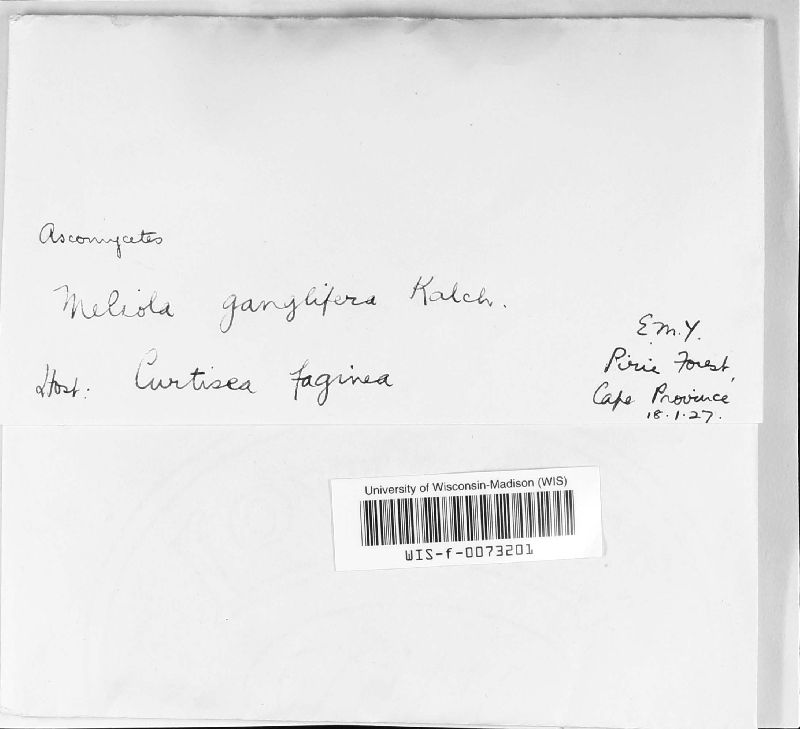 Ascomycetes
Meliola ganglifera Kalch.
Host: Curtisea faginea
E.M.Y.
Pirie Forest,
Cape Province
18.1.27.
University of Wisconsin-Madison (WIS)
WIS-f-0073201